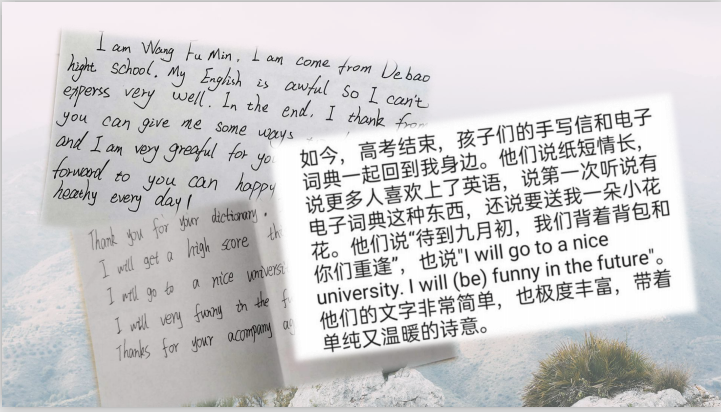 I am Wang Fu Min. I am come from Debao
hight school. My English is awful so I can't
experss very well. In the end, I thank from
you can give me some ways
and I am very greaful for yo
forward to you can happy
heathy every day!
Thank you for your dictionary.
I will get a high score th
I will go to a nice universi
I will very funny in the f
Thanks for your acompany ag
如今，高考结束，孩子们的手写信和电子
词典一起回到我身边。他们说纸短情长，
说更多人喜欢上了英语，说第一次听说有
电子词典这种东西，还说要送我一朵小花
花。他们说“待到九月初，我们背着背包和
你们重逢”，也说"I will go to a nice
university. I will (be) funny in the future"。
他们的文字非常简单，也极度丰富，带着
单纯又温暖的诗意。